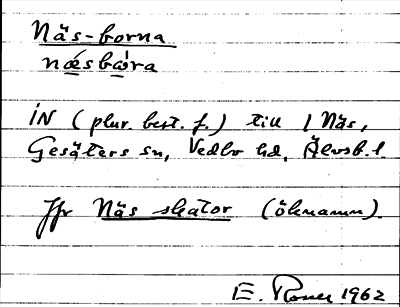 Näs-borna
næsbåra
iN (plur. best. f.) till 1 Näs,
Gesäters sn, Vedbo hd, Älvsb. l.
Jfr Näs skator (öknamn).
E. 1962